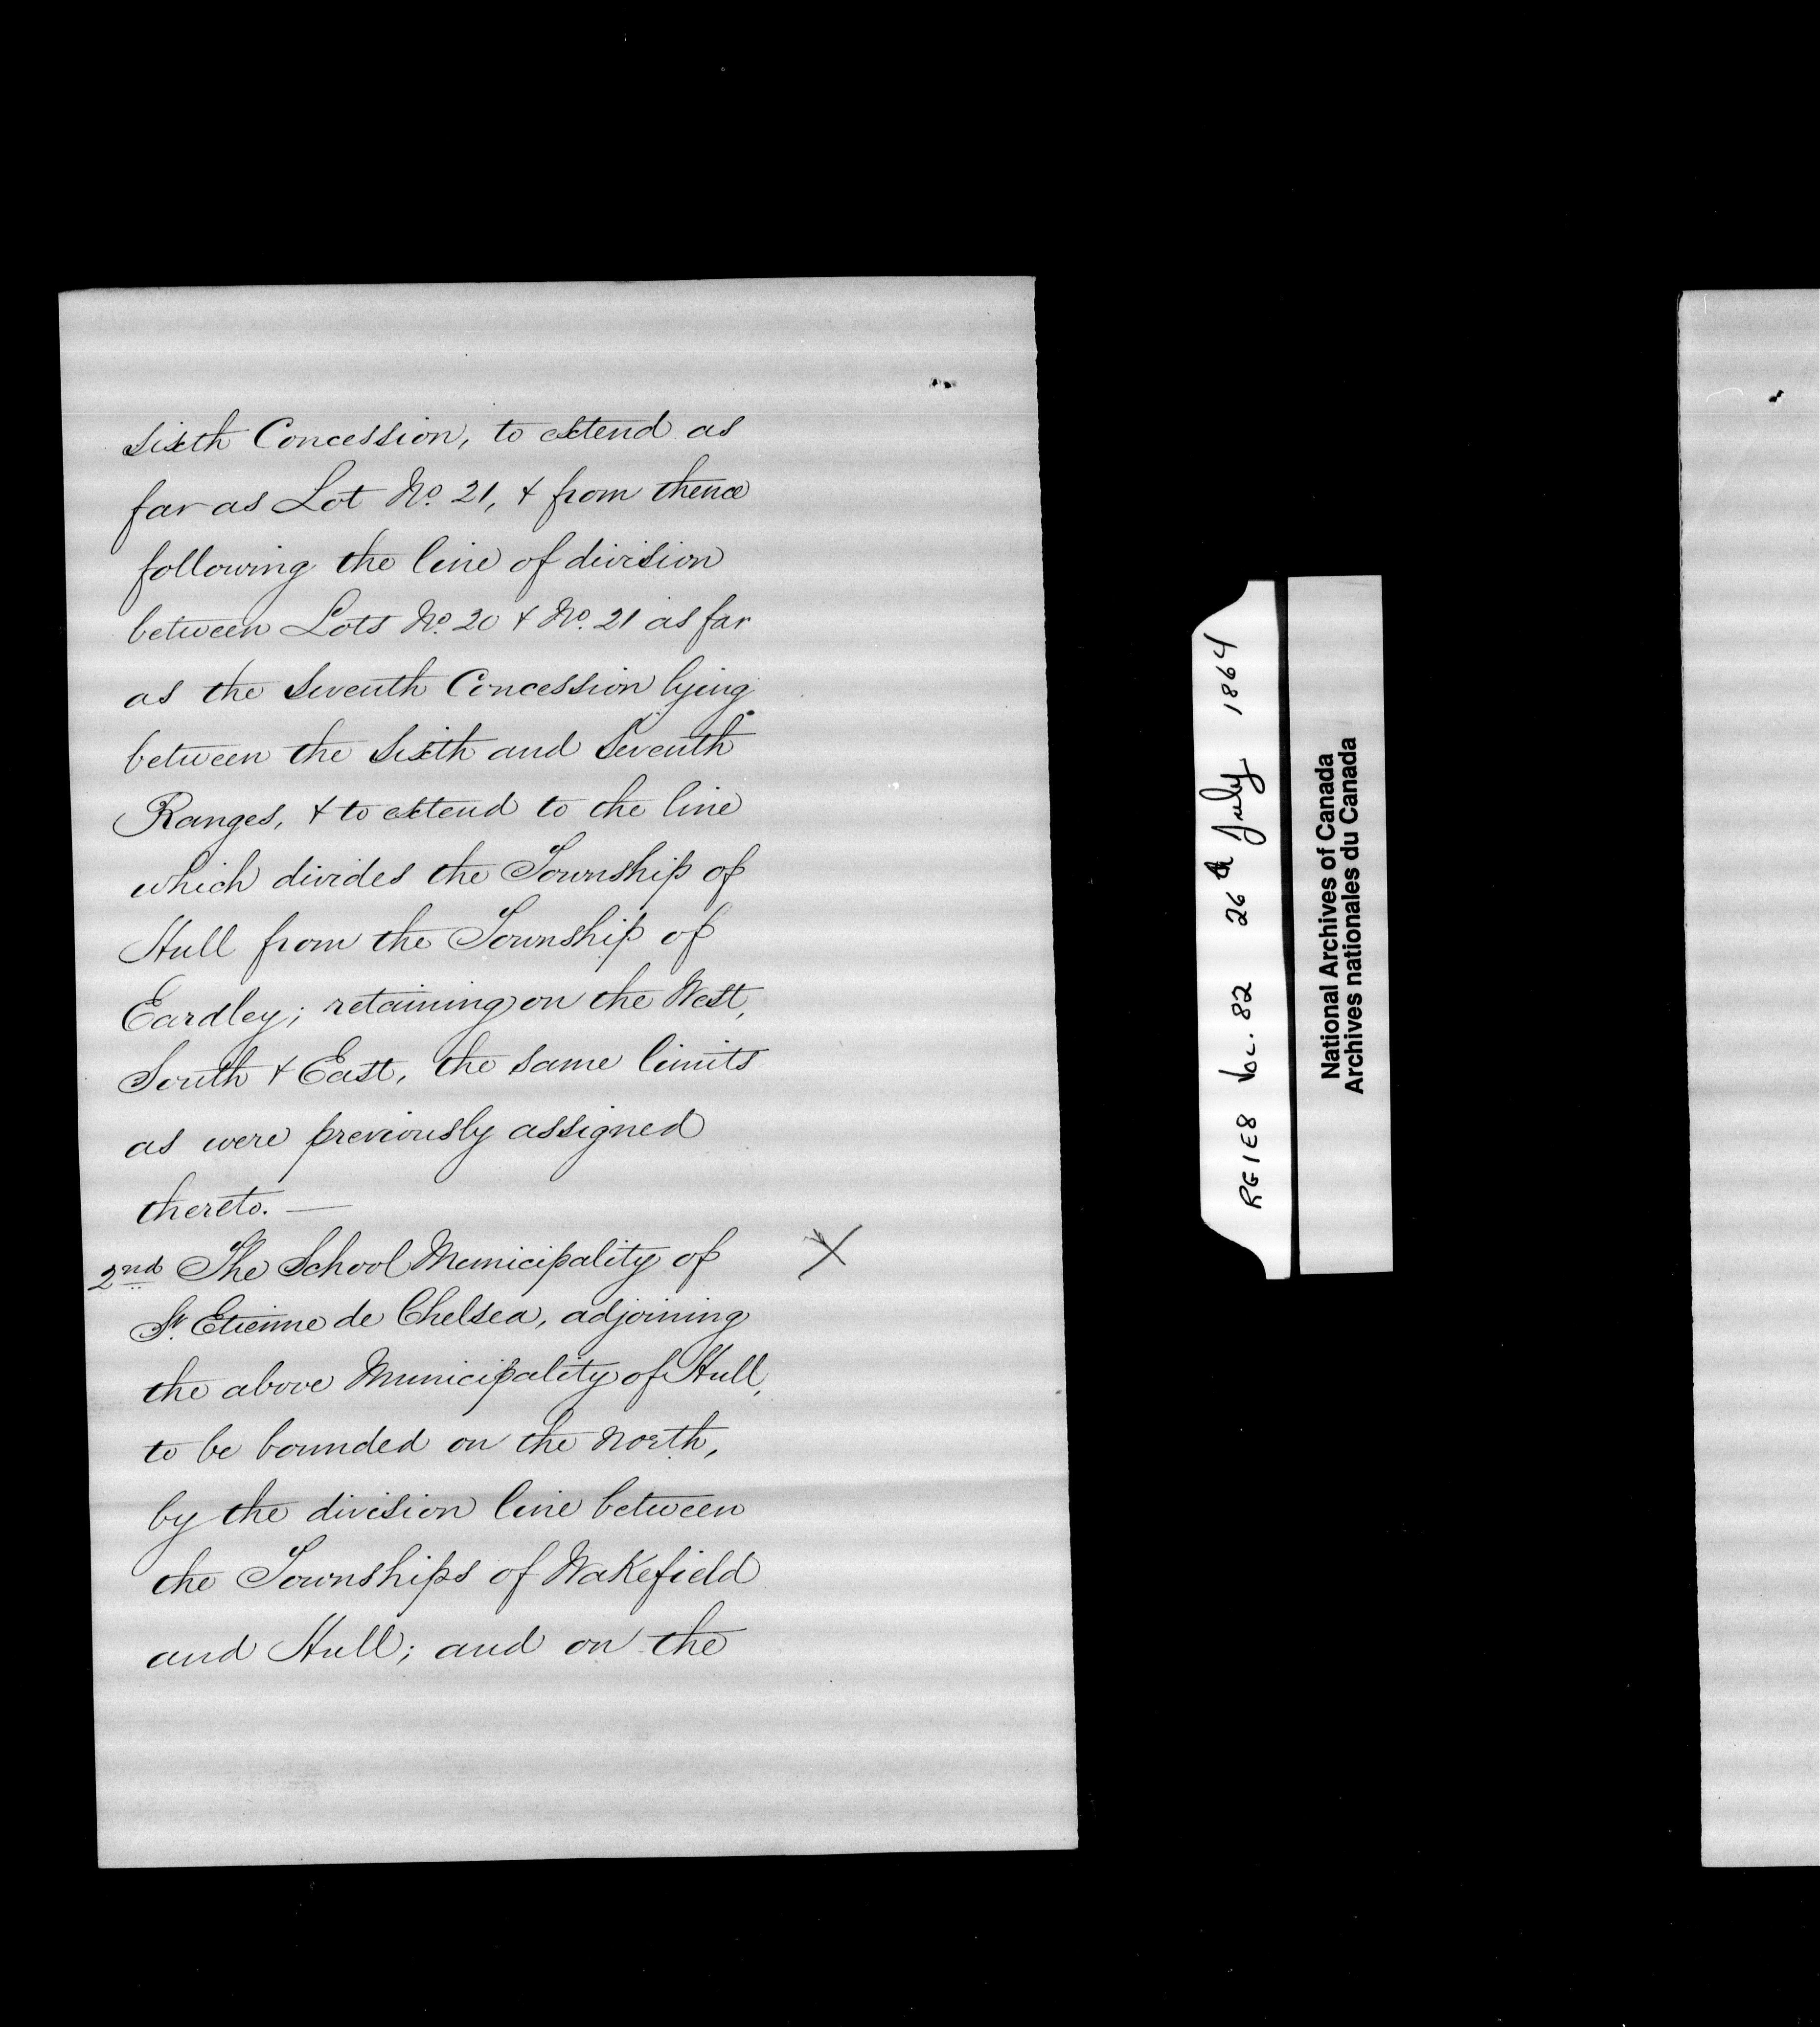 sixth Concession, to extend as
far as Lot No. 21, & from thence
following the line of division
between Lots No. 20 & No. 21 as far
as the Seventh Concession lying
between the Sixth and Seventh
Ranges, & to extend to the line
which divides the Township of
Hull from the Township of
Eardley; retaining on the West,
South & East, the same limits
as were previously assigned
thereto. —
2nd The School Municipality of
St. Etienne de Chelsea, adjoining
the above Municipality of Hull,
to be bounded on the North,
by the division line between
the Townships of Wakefield
and Hull; and on the
X
RG1E8 Vol. 82 26th July 1864
National Archives of Canada
Archives nationales du Canada